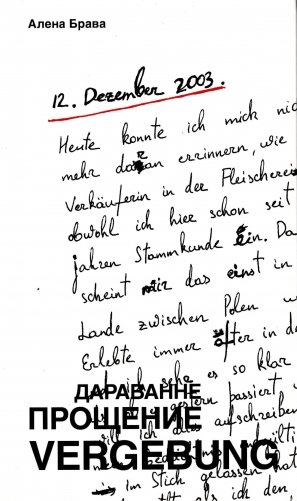 Алена Брава
12. Dezember 2003.
Heute konnte ich mich nic
mehr daran errinnern, wie
Verkäuferin in der Fleischerei
obwohl ich hier schon seit
jahren Stammkunde bin. Da
scheint mir das einst in
Lande zwischen Polen u
Erlebte immer öfter in de
ich sehe es so klar
ДАРАВАННЕ
gestern passiert
ПРОЩЕНИЕ
will ich dies aufschreiben
VERGEBUNG
im Stich gelassen hat
als ich den